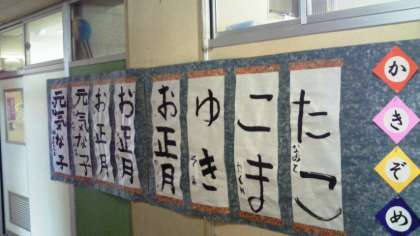 かきぞめ
たこ
こま
ゆき
お正月
お正月
お正月
元気な子
元気な子